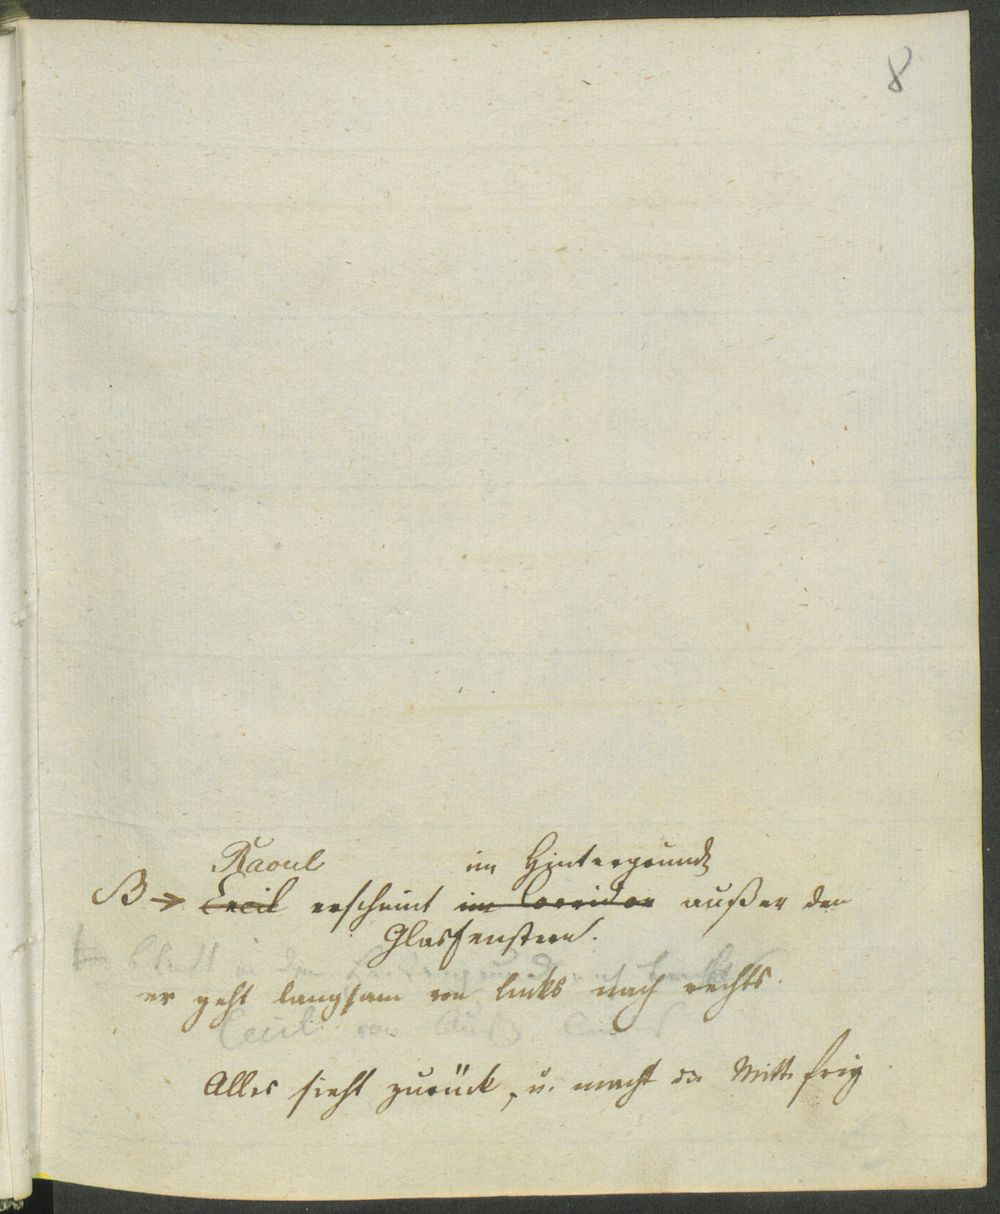 8
Raoul im Hintergrunde
B → Cecil erscheint im Corridor außer den
Glasfenstern.
er geht langsam von links nach rechts.
Cecil von
Alles sieht zurück, u. macht die Mitte frey